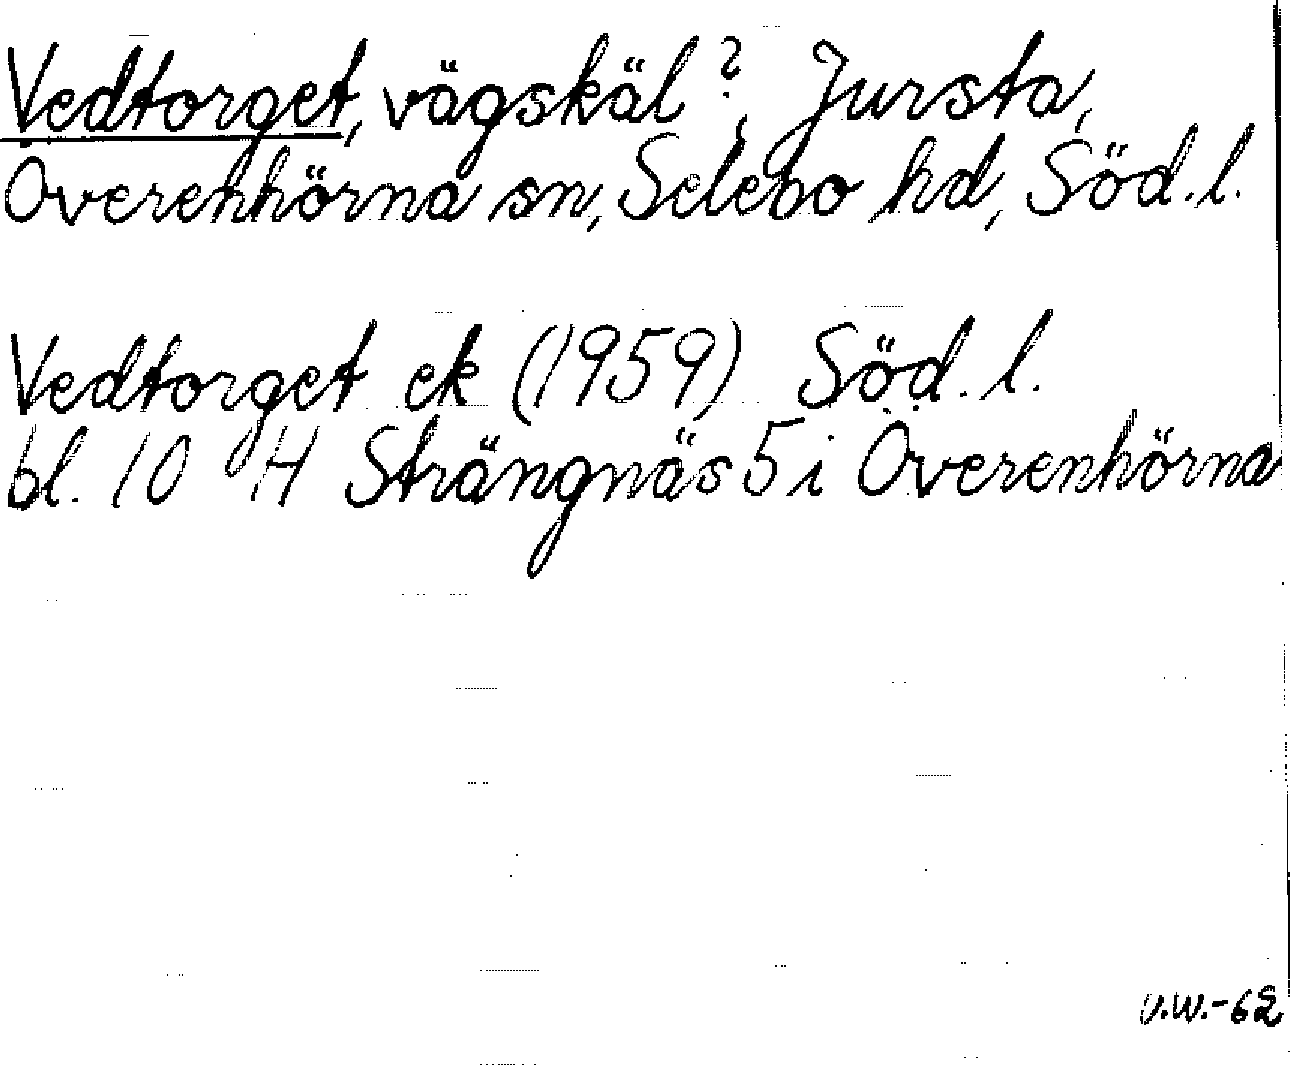 Vedtorget, vägskäl?, Jursta,
Överenhörna sn, Selebo hd, Söd. l.
Vedtorget ek (1959) Söd. l.
bl. 10 H Strängnäs 5 i Överenhörna
V.W.-62